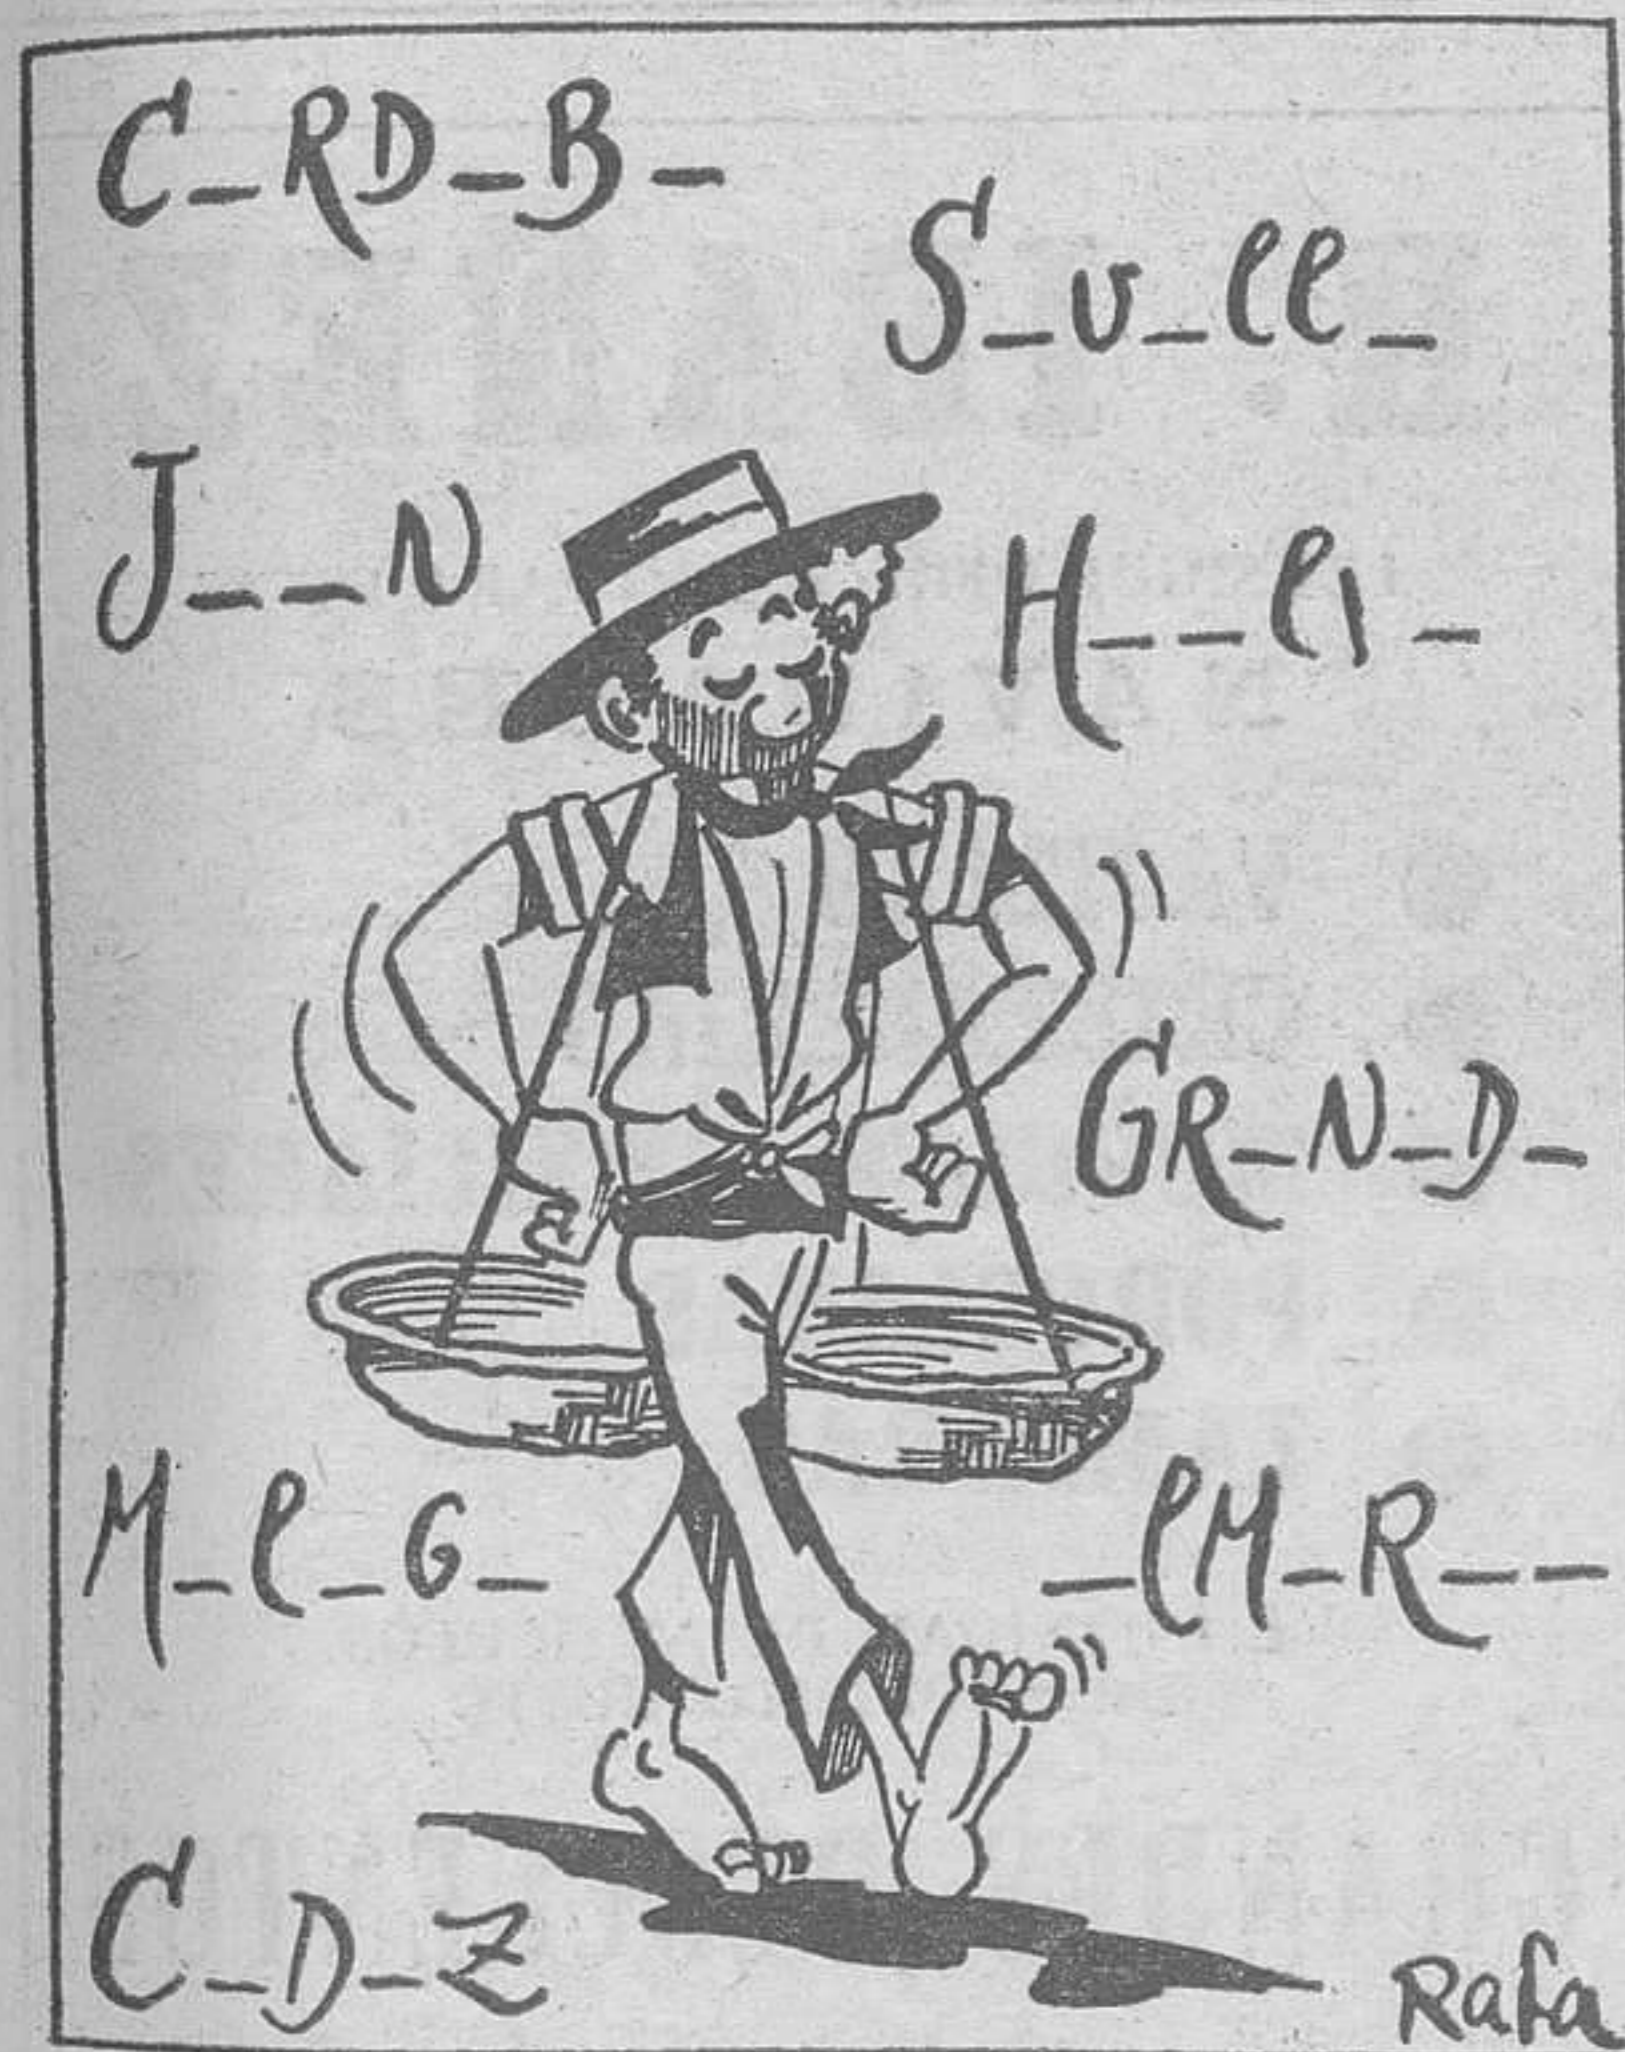 C_RD_B_
S_v_ll_
J__N
H__l__
GR_N_D_
M_l_G_
_lM_R__
C_D_Z
Rafa